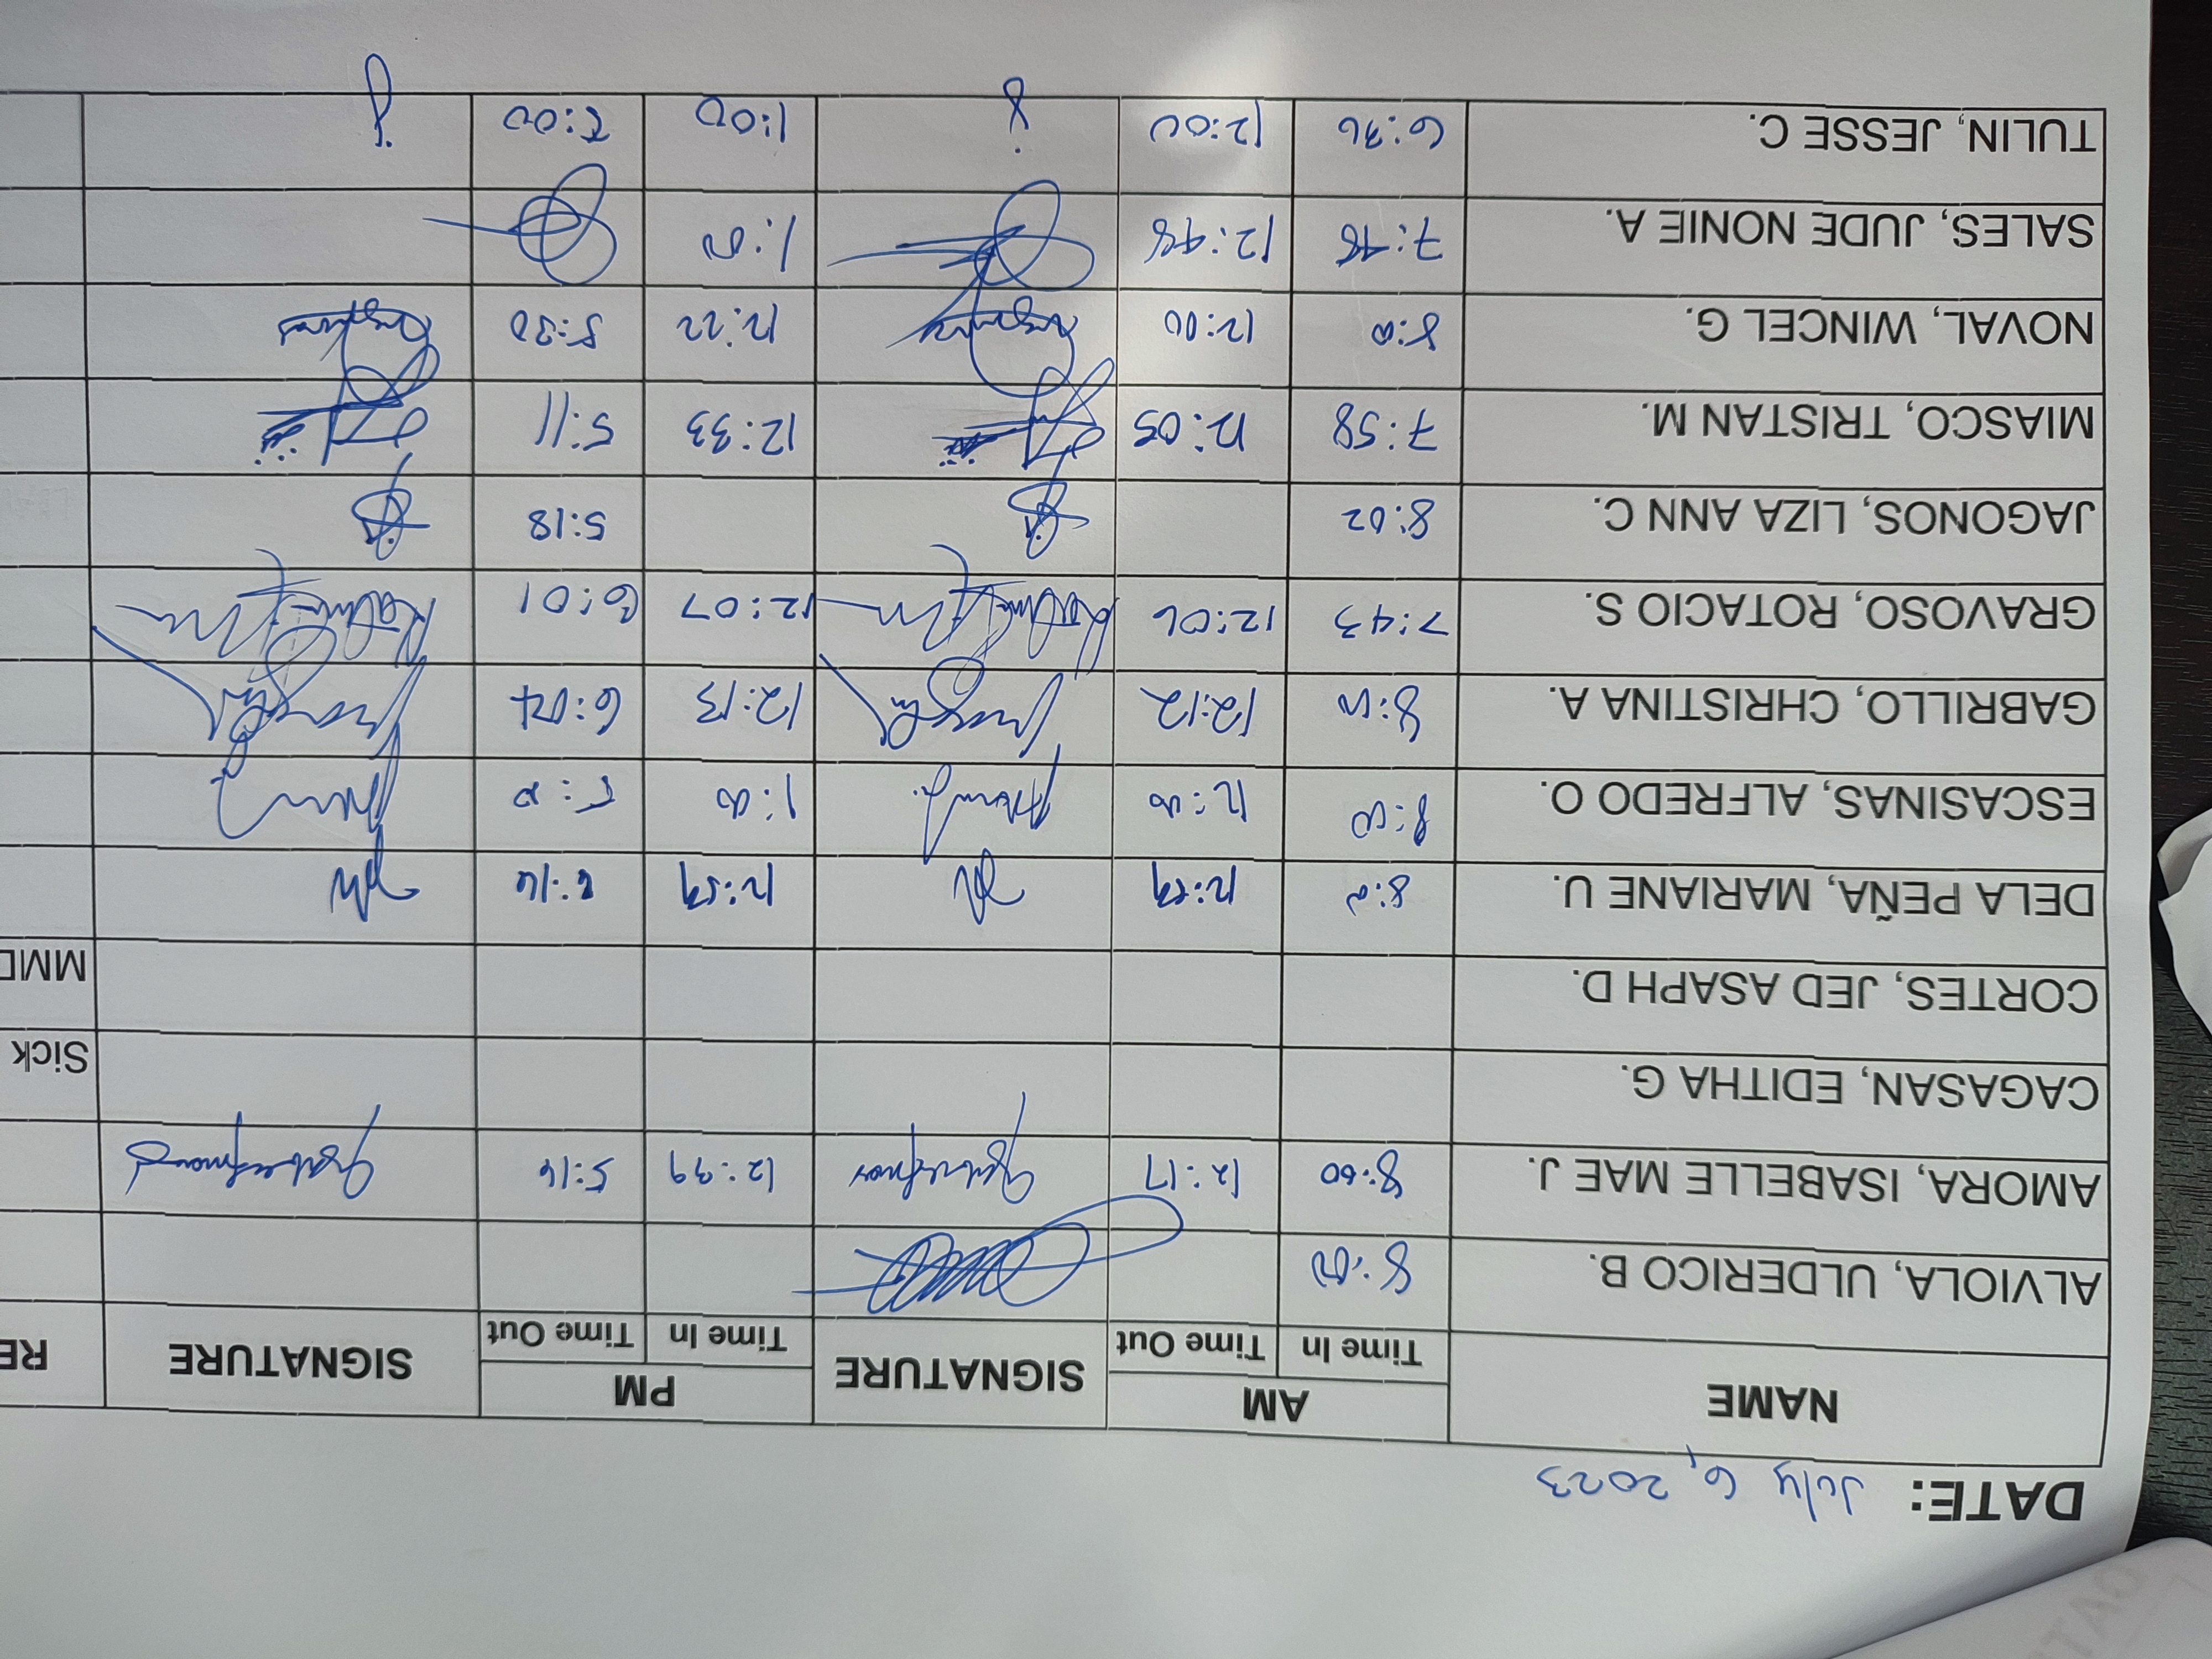 DATE: July 6, 2023
NAME AM SIGNATURE PM SIGNATURE RE
Time In Time Out Time In Time Out
ALVIOLA, ULDERICO B. 8:00
AMORA, ISABELLE MAE J. 8:00 12:17 12:39 5:16
CAGASAN, EDITHA G. Sick
CORTES, JED ASAPH D. MMD
DELA PEÑA, MARIANE U. 12:59 12:59
ESCASINAS, ALFREDO O. 8:00 12:00 1:00
GABRILLO, CHRISTINA A. 8:00 12:12 12:13 6:04
GRAVOSO, ROTACIO S. 7:43 12:06 12:07 6:01
JAGONOS, LIZA ANN C. 8:02 5:18
MIASCO, TRISTAN M. 7:58 12:05 12:33 5:11
NOVAL, WINCEL G. 8:00 12:00 12:22 5:30
SALES, JUDE NONIE A. 7:48 12:48 1:00
TULIN, JESSE C. 6:36 12:00 1:00 5:00